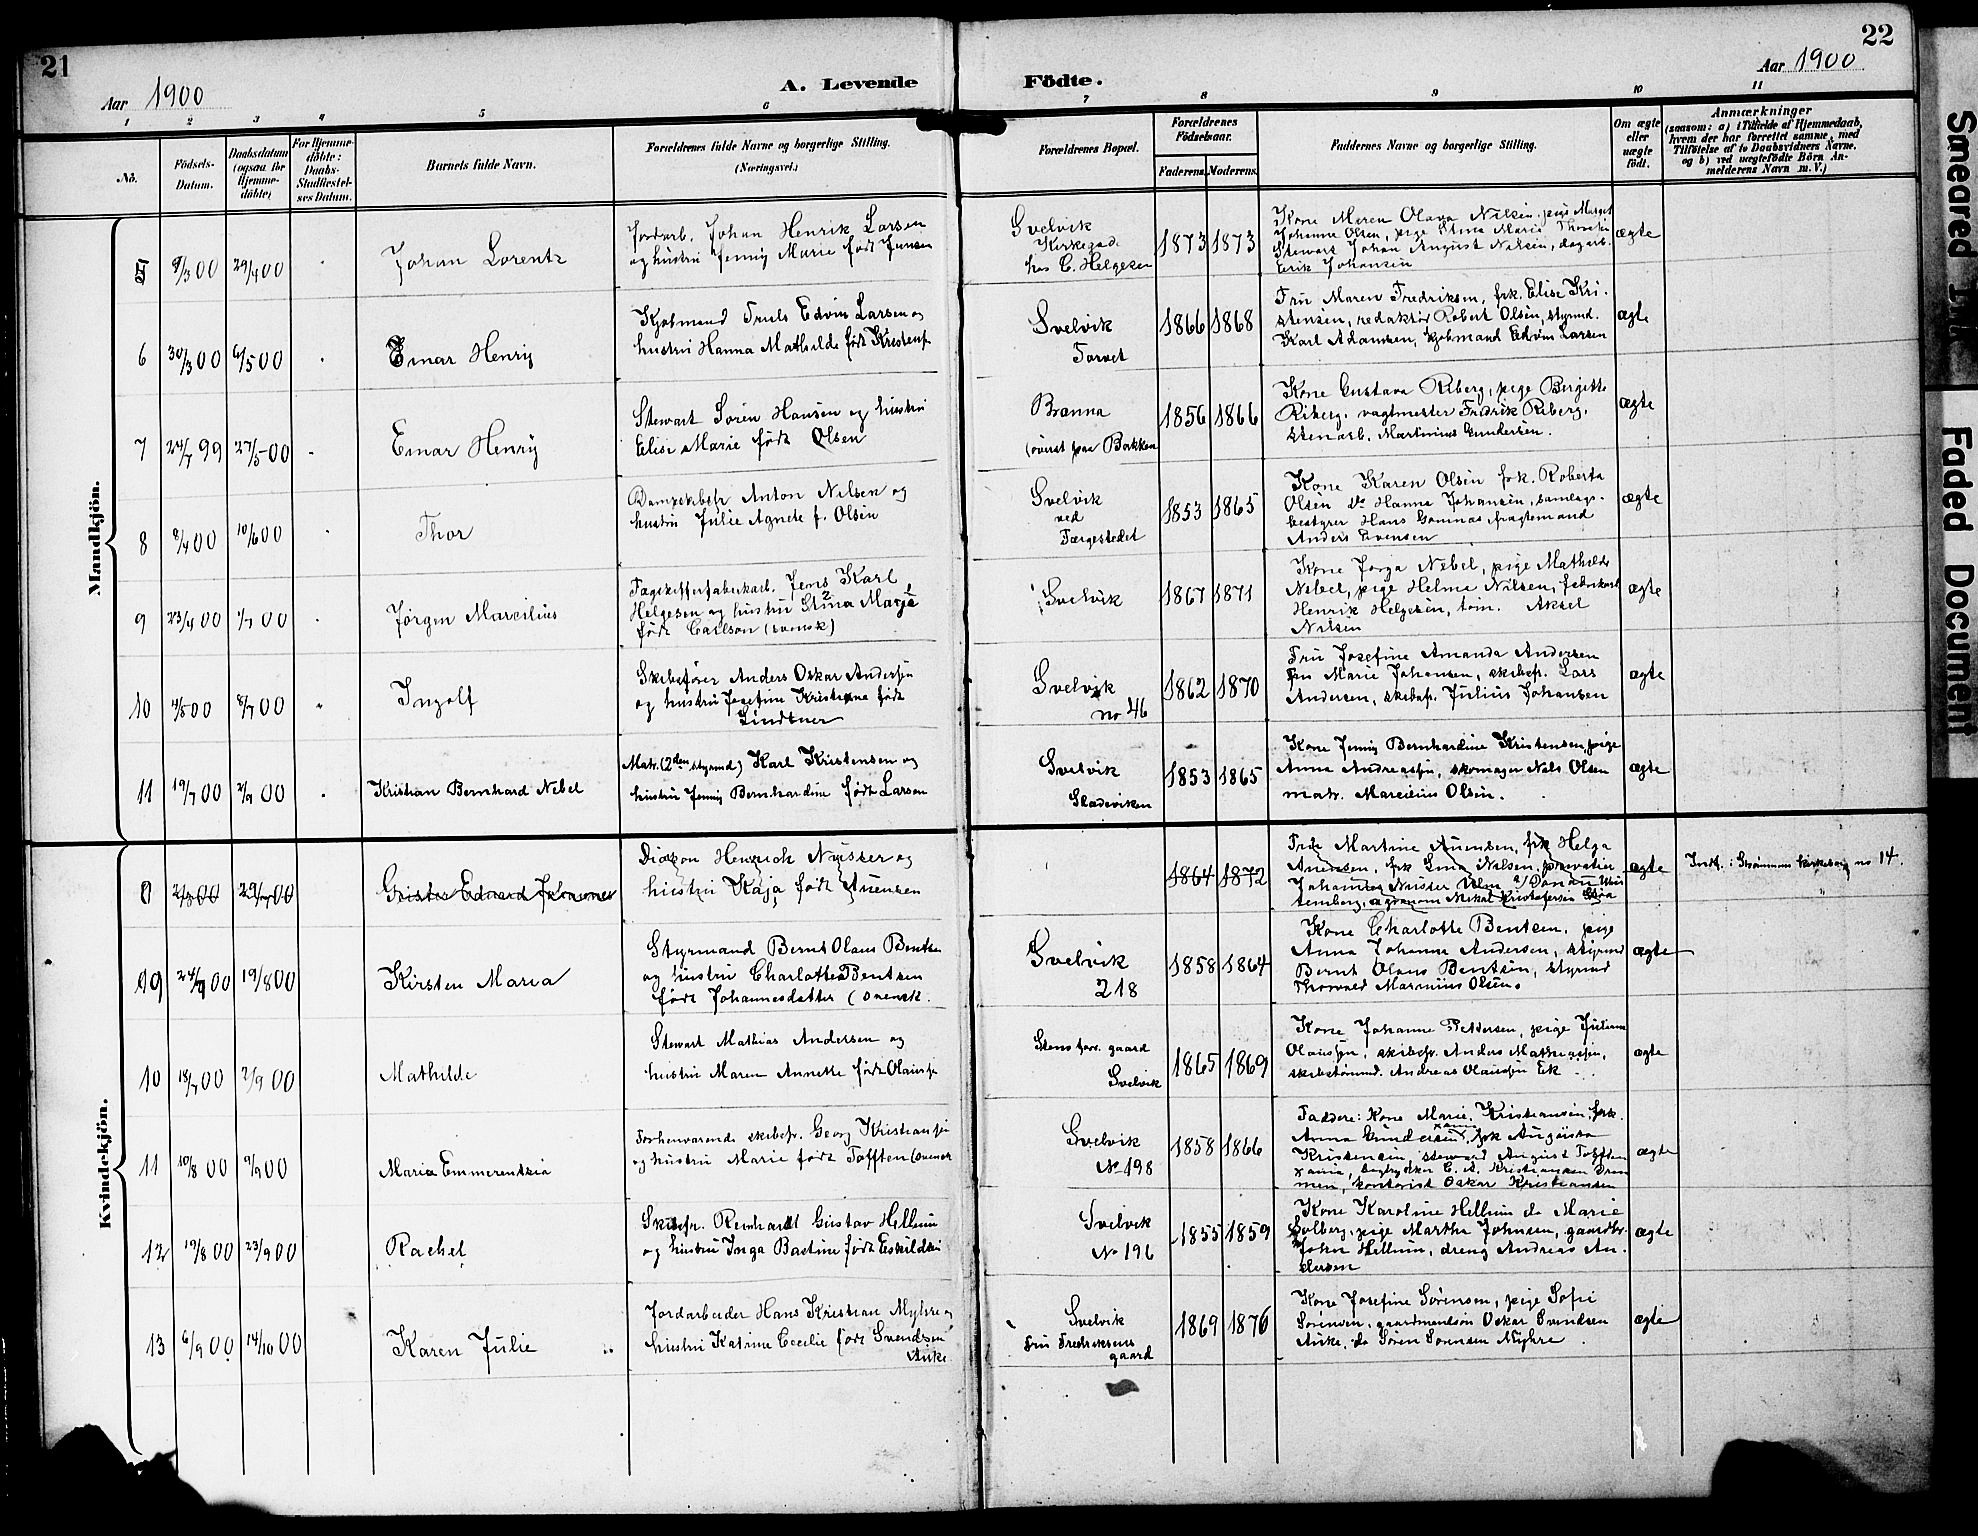 21
22
Aar 1900
A. Levende Födte.
Aar 1900
1 2 3 4 5 6 7 8 9 10 11
Nô.
Födsels-Datum.
Daabsdatum (ogsaa for Hjemme-döbte)
For Hjemme-döbte: Daabs-Stadfæstel-ses Datum.
Barnets fulde Navn.
Forældrenes fulde Navne og borgerlige Stilling.
(Næringsvei.)
Forældrenes Bopæl.
Forældrenes Födselsaar.
Faderens. Moderens.
Faddernes Navne og borgerlige Stilling.
Om ægte eller uægte födt.
Anmærkninger
(saasom: a) i Tilfælde af Hjemmedaab,
hvem der har forrettet samme, med
Tilföielse af to Daabsvidners Navne,
og b) ved uægtefödte Börn An-
melderens Navn m. V.)
Mandkjön.
5 9/3 00 29/4 00 Johan Lorentz
Jordarb. Johan Henrik Larsen
og hustru Jenny Marie født Jensen
Svelvik
Kirkegad.
hos C. Helgesen
1873 1873
Kone Maren Olava Nilsen, pige Margit
Johanne Olsen, pige Stina Marie Thorsen
Stewart Johan August Nilsen, dagarb.
Erik Johansen
ægte
6 30/3 00 6/5 00 Einar Henry
Kjøbmand Truls Edvin Larsen og
hustru Hanna Mathilde født Kristens.
Svelvik
Torvet
1866 1868
Fru Maren Fredriksen, frk. Elise Kri-
stensen, redaktør Robert Olsen, styrmd.
Karl Adamsen, kjøbmand Edvin Larsen
ægte
7 24/7 99 27/5 00 Einar Henry
Stewart Soren Hansen og hustru
Elise Marie født Olsen
Branna
(øverst paa Bakken
1856 1866
Kone Gustava Riberg, pige Bergitte
Riberg, vagtmester Fredrik Riberg,
stenarb. Martinius Gundersen.
ægte
8 8/4 00 10/6 00 Thor
Dampskibsfr Anton Nilsen og
hustru Julie Agnete f. Olsen
Svelvik
ved
Færgestedet
1853 1865
Kone Karen Olsen frk. Roberta
Olsen do Hanna Johansen, samlags-
bestyrer Hans Gomnæs, fragtemand
Anders Evensen
ægte
9 23/4 00 1/7 00 Jørgen Marcilius
Fagskifferfabrikarb. Jens Karl
Helgesen og hustru Stina Marie
født Carlson (svensk)
Svelvik
1867 1871
Kone Jorga Nebel, pige Mathilde
Nebel, pige Helma Nilsen, fabrikarb
Henrik Helgesen, tøm. Aksel
Nilsen
ægte
10 4/5 00 8/7 00 Ingolf
Skibsfører Anders Oskar Andersen
og hustru Josefine Kristiane født
Lindtner
Svelvik
no 46
1862 1870
Fru Josefine Amanda Andersen
fru Marie Johansen, skibsfr. Lars
Andersen, skibsfr. Julius Johansen
ægte
11 19/7 00 2/9 00 Kristian Bernhard Nebel
Matr. (2den styrmd) Karl Kristensen og
hustru Jenny Bernhardine født Larsen
Svelvik
Sladeviken
1853 1865
Kone Jenny Bernhardine Kristensen, pige
Anna Andreassen, skomager Nils Olsen
matr. Marcilius Olsen.
ægte
Kvindekjön.
2/3 00 29/7 00 Gustav Edvard Johannes
Diakon Henrich Nusser og
hustru Kaja født Auensen
1864 1872
Frk Martine Auensen, frk Helga
Auensen, frk Nilsen, privatier
ægte
Indf. i Strømmens Kirkebog no 14.
9 24/7 00 19/8 00 Kirsten Maria
Styrmand Bernt Olaus Bentsen
og hustru Charlotte Bentsen
født Johannesdatter (svensk.
Svelvik
218
1858 1864
Kone Charlotte Bentsen, pige
Anna Johanne Andersen, styrmd
Bernt Olaus Bentsen, styrmd
Thorvald Marinius Olsen.
ægte
10 18/7 00 2/9 00 Mathilde
Stewart Mathias Andersen og
hustru Maren Annette født Olausen
Stens forv. gaard
Svelvik
1865 1869
Kone Johanne Pettersen, pige Juliane
Olaussen, skibsfr. Anders Mathiassen,
skibstømmd. Andreas Olaussen Eik
ægte
11 10/8 00 9/9 00 Maria Emmerentzia
Forhenværende skibsfr. Georg Kristiansen
og hustru Marie født Tofften (svensk
Svelvik
No 198
1858 1866
Faddere: Kone Marie Kristiansen, frk.
Anna Gundersen, Xania frk Augusta
Kristensen, steward August Tofften
Xania, bogtrykker C. A. Kristiansen Dram
men, kontorist Oskar Kristiansen
ægte
12 19/8 00 23/9 00 Rachel
Skibsfr. Reinhardt Gustav Hellum
og hustru Inga Bastine født Eskildsen
Svelvik
No 196
1855 1859
Kone Karoline Hellum do Marie
Solberg, pige Martha Johnsen, gaardbr.
John Hellum, dreng Andreas An-
dersen
ægte
13 6/9 00 14/10 00 Karen Julie
Jordarbeider Hans Kristian Myhre og
hustru Katrine Cecilie født Svendsen
Auke
Svelvik
fru Fredriksens
gaard
1869 1876
Kone Josefine Sørensen, pige Sofi
Sørensen, gaardmandsøn Oskar Svendsen
Auke, do Søren Sørensen Myhre
ægte
Smeared Ink
Faded Document